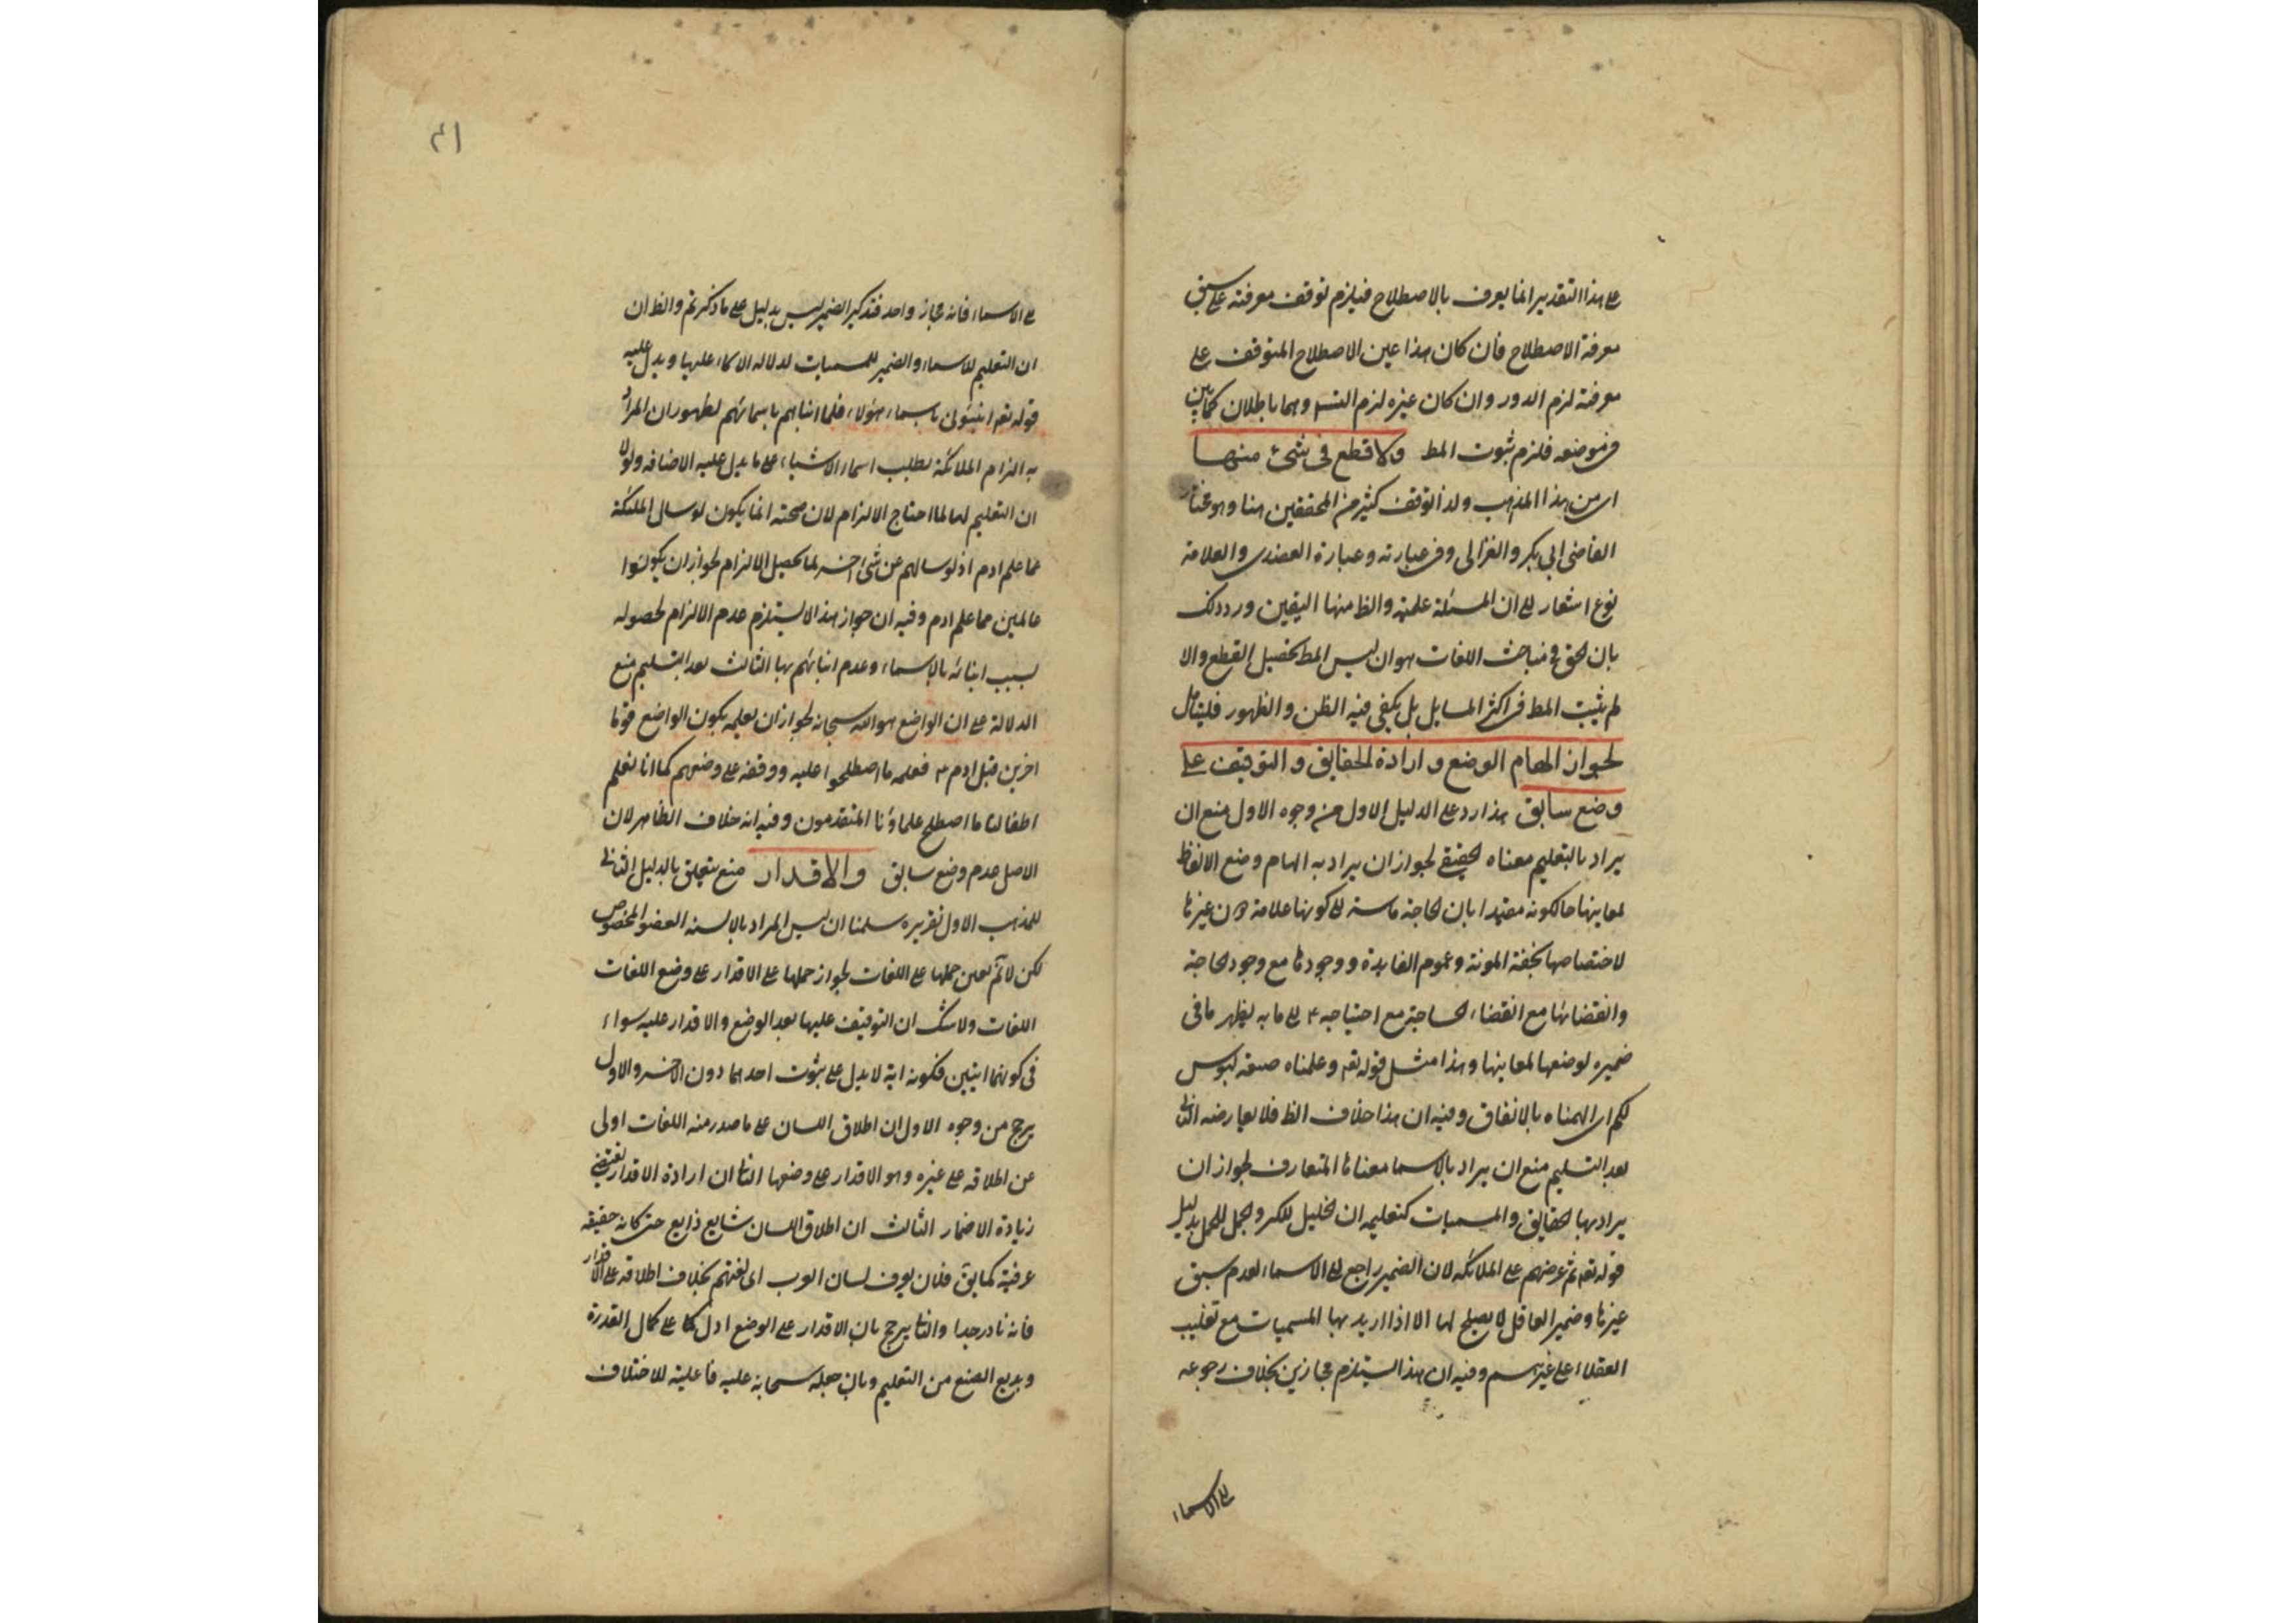 على هذا التقدير انما يعرف بالاصطلاح فيلزم توقف معرفته على سبق
معرفة الاصطلاح فان كان هذا عين الاصطلاح المتوقف على
معرفته لزم الدور وان كان غيره لزم التسـ وهما باطلان كما بين
فى موضعه فلزم ثبوت المط ولا قطع فى شئ منها
اى من هذا المذهب ولذا توقف كثير من المحققين هنا وهو مختار
القاضى ابى بكر والغزالى وفى عبارته وعبارة العضدى والعلامة
نوع اشعار الى ان المسئلة علمية والظ منها اليقين ورد ذلك
بان الحق فى مباحث اللغات هو ان ليس المط تحصيل القطع والا
لم يثبت المط فى اكثر المسايل بل يكفى فيه الظن والظهور فليتامل
لجواز الهام الوضع و ارادة الحقايق و التوقيف على
وضع سابق هذا رد على الدليل الاول من وجوه الاول منع ان
يراد بالتعليم معناه الحقيقى لجواز ان يراد به الهام وضع الالفاظ
لمعاينها حالكونه معتمدا بان الحاجة ماسة الى كونها علامة دون غيرها
لاختصاصها بخفة المونة وعموم الفايدة ووجودها مع وجود الحاجة
وانقضائها مع انقضاء الحاجة مع احتياجه ع الى ما به يظهر ما فى
ضميره لوضعها لمعاينها وهذا مثل قوله تعـ وعلمناه صنعة لبوس
لكم اى الهمناه بالاتفاق وفيه ان هذا خلاف الظ فلا يعارضه الثانى
بعد التسليم منع ان يراد بالاسما معناها المتعارف لجواز ان
يراد بها الحقايق والمسميات كتعليمه ان الخيل للكر والجمل للحمل بدليل
قوله تعـ ثم عرضهم على الملائكة لان الضمير راجع الى الاسماء لعدم سبق
غيرها وضمير العاقل لا يصلح لها الا اذا اريد بها المسميات مع تغليب
العقلاء على غيرهم وفيه ان هذا يستلزم مجازين بخلاف رجوعه
الى الاسماء
٤١
الى الاسماء فانه مجاز واحد فتذكير الضمير ليس بدليل على ما ذكرتم والظ ان
ان التعليم للاسماء والضمير للمسميات لدلالة الاسماء عليها ويدل عليه
قوله تعـ انبئونى باسماء هؤلاء فلما انباهم باسمائهم لظهور ان المراد
به الزام الملائكة بطلب اسماء الاشياء على ما يدل عليه الاضافة ولولا
ان التعليم لها لما احتاج الالزام لان صحته انما يكون لو سال الملئكة
عما علم ادم اذ لو سالهم عن شئ اخر لما يحصل الالزام لجواز ان يكونوا
عالمين مما علم ادم وفيه ان جواز هذا لا يستلزم عدم الالزام لحصوله
بسبب انبائه بالاسماء وعدم انبائهم بها الثالث بعد التسليم منع
الدلالة على ان الواضع هو الله سبحانه لجواز ان يعلمه بكون الواضع قوما
اخرين قبل ادم ع فعلمه ما اصطلحوا عليه ووقفه على وضعهم كما انا نعلم
اطفالنا ما اصطلح علماؤنا المتقدمون وفيه انه خلاف الظاهر لان
الاصل عدم وضع سابق والاقدار منع يتعلق بالدليل الثانى
للمذهب الاول تقريره سلمنا ان ليس المراد بالالسنة العضو المخصوص
لكن لا نم تعين حملها على اللغات لجواز حملها على الاقدار على وضع اللغات
اللغات ولا شك ان التوقيف عليها بعد الوضع والاقدار عليه سواء
فى كونهما ايتين فكونه اية لا يدل على ثبوت احدهما دون الاخر والاول
يرجح من وجوه الاول ان اطلاق اللسان على ما صدر منه اللغات اولى
من اطلاقه على غيره وهو الاقدار على وضعها الثا ان ارادة الاقدار يقتضى
زيادة الاضمار الثالث ان اطلاق اللسان شايع ذايع حتى كانه حقيقة
عرفية كما يق فلان يعرف لسان العرب اى لغتهم بخلاف اطلاقه على الاقدار
فانه نادر جدا والثا يرجح بان الاقدار على الوضع ادل على كمال القدرة
وبديع الصنع من التعليم وبان جعله سبحانه عليه فاعلية للاختلاف